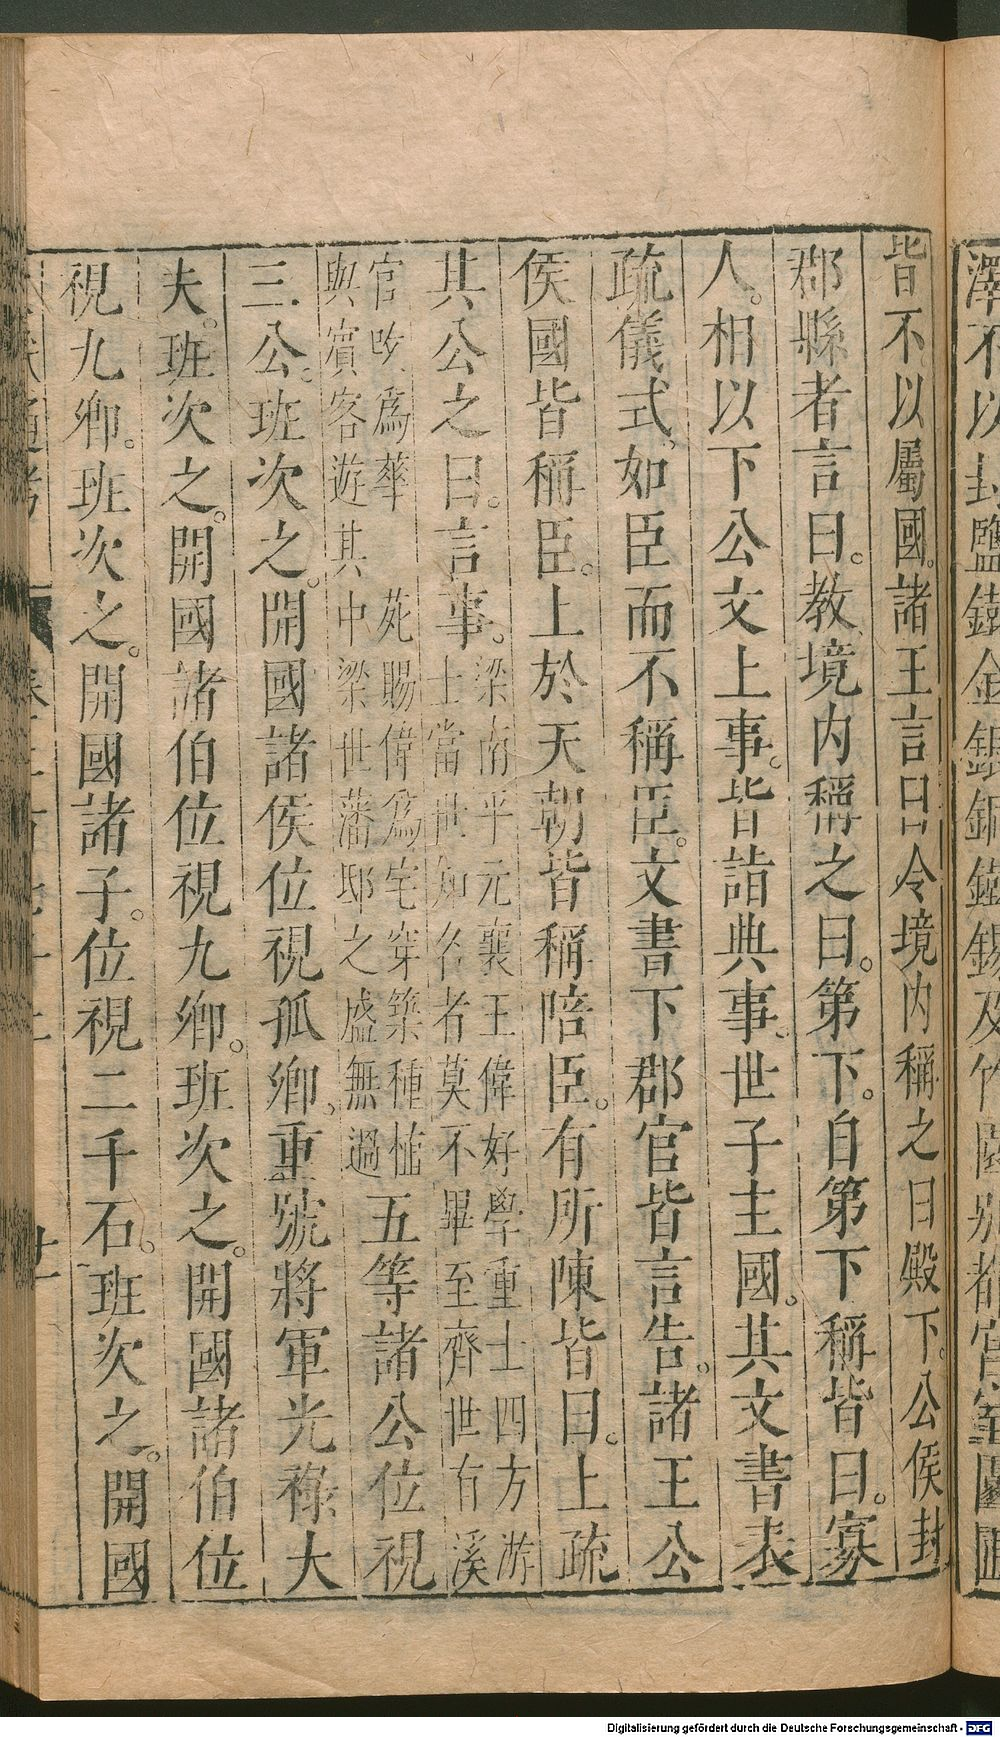 澤不以封鹽鐵金銀銅錫及竹
皆不以屬國。諸王言曰令境内稱之曰殿下。公侯封
郡縣者言曰。教境内稱之曰。第下。自第下稱皆曰。寡
人。相以下公文上事。皆詣典事。世子主國。其文書表
疏儀式如臣而不稱臣。文書下郡官皆言告。諸王公
侯國皆稱臣。上於天朝皆稱陪臣。有所陳皆曰。上疏
其公之曰。言事。
梁南平元襄王偉好學重士四方游
士當世知名者莫不畢至齊世有溪
官改為華苑賜偉為宅穿築種植
與賓客遊其中梁世藩邸之盛無過
五等諸公位視
三公。班次之。開國諸侯位視孤卿重號將軍光祿大
夫。班次之。開國諸伯位視九卿。班次之。開國諸伯位
視九卿。班次之。開國諸子。位視二千石。班次之。開國
通考
廿
Digitalisierung gefördert durch die Deutsche Forschungsgemeinschaft - DFG